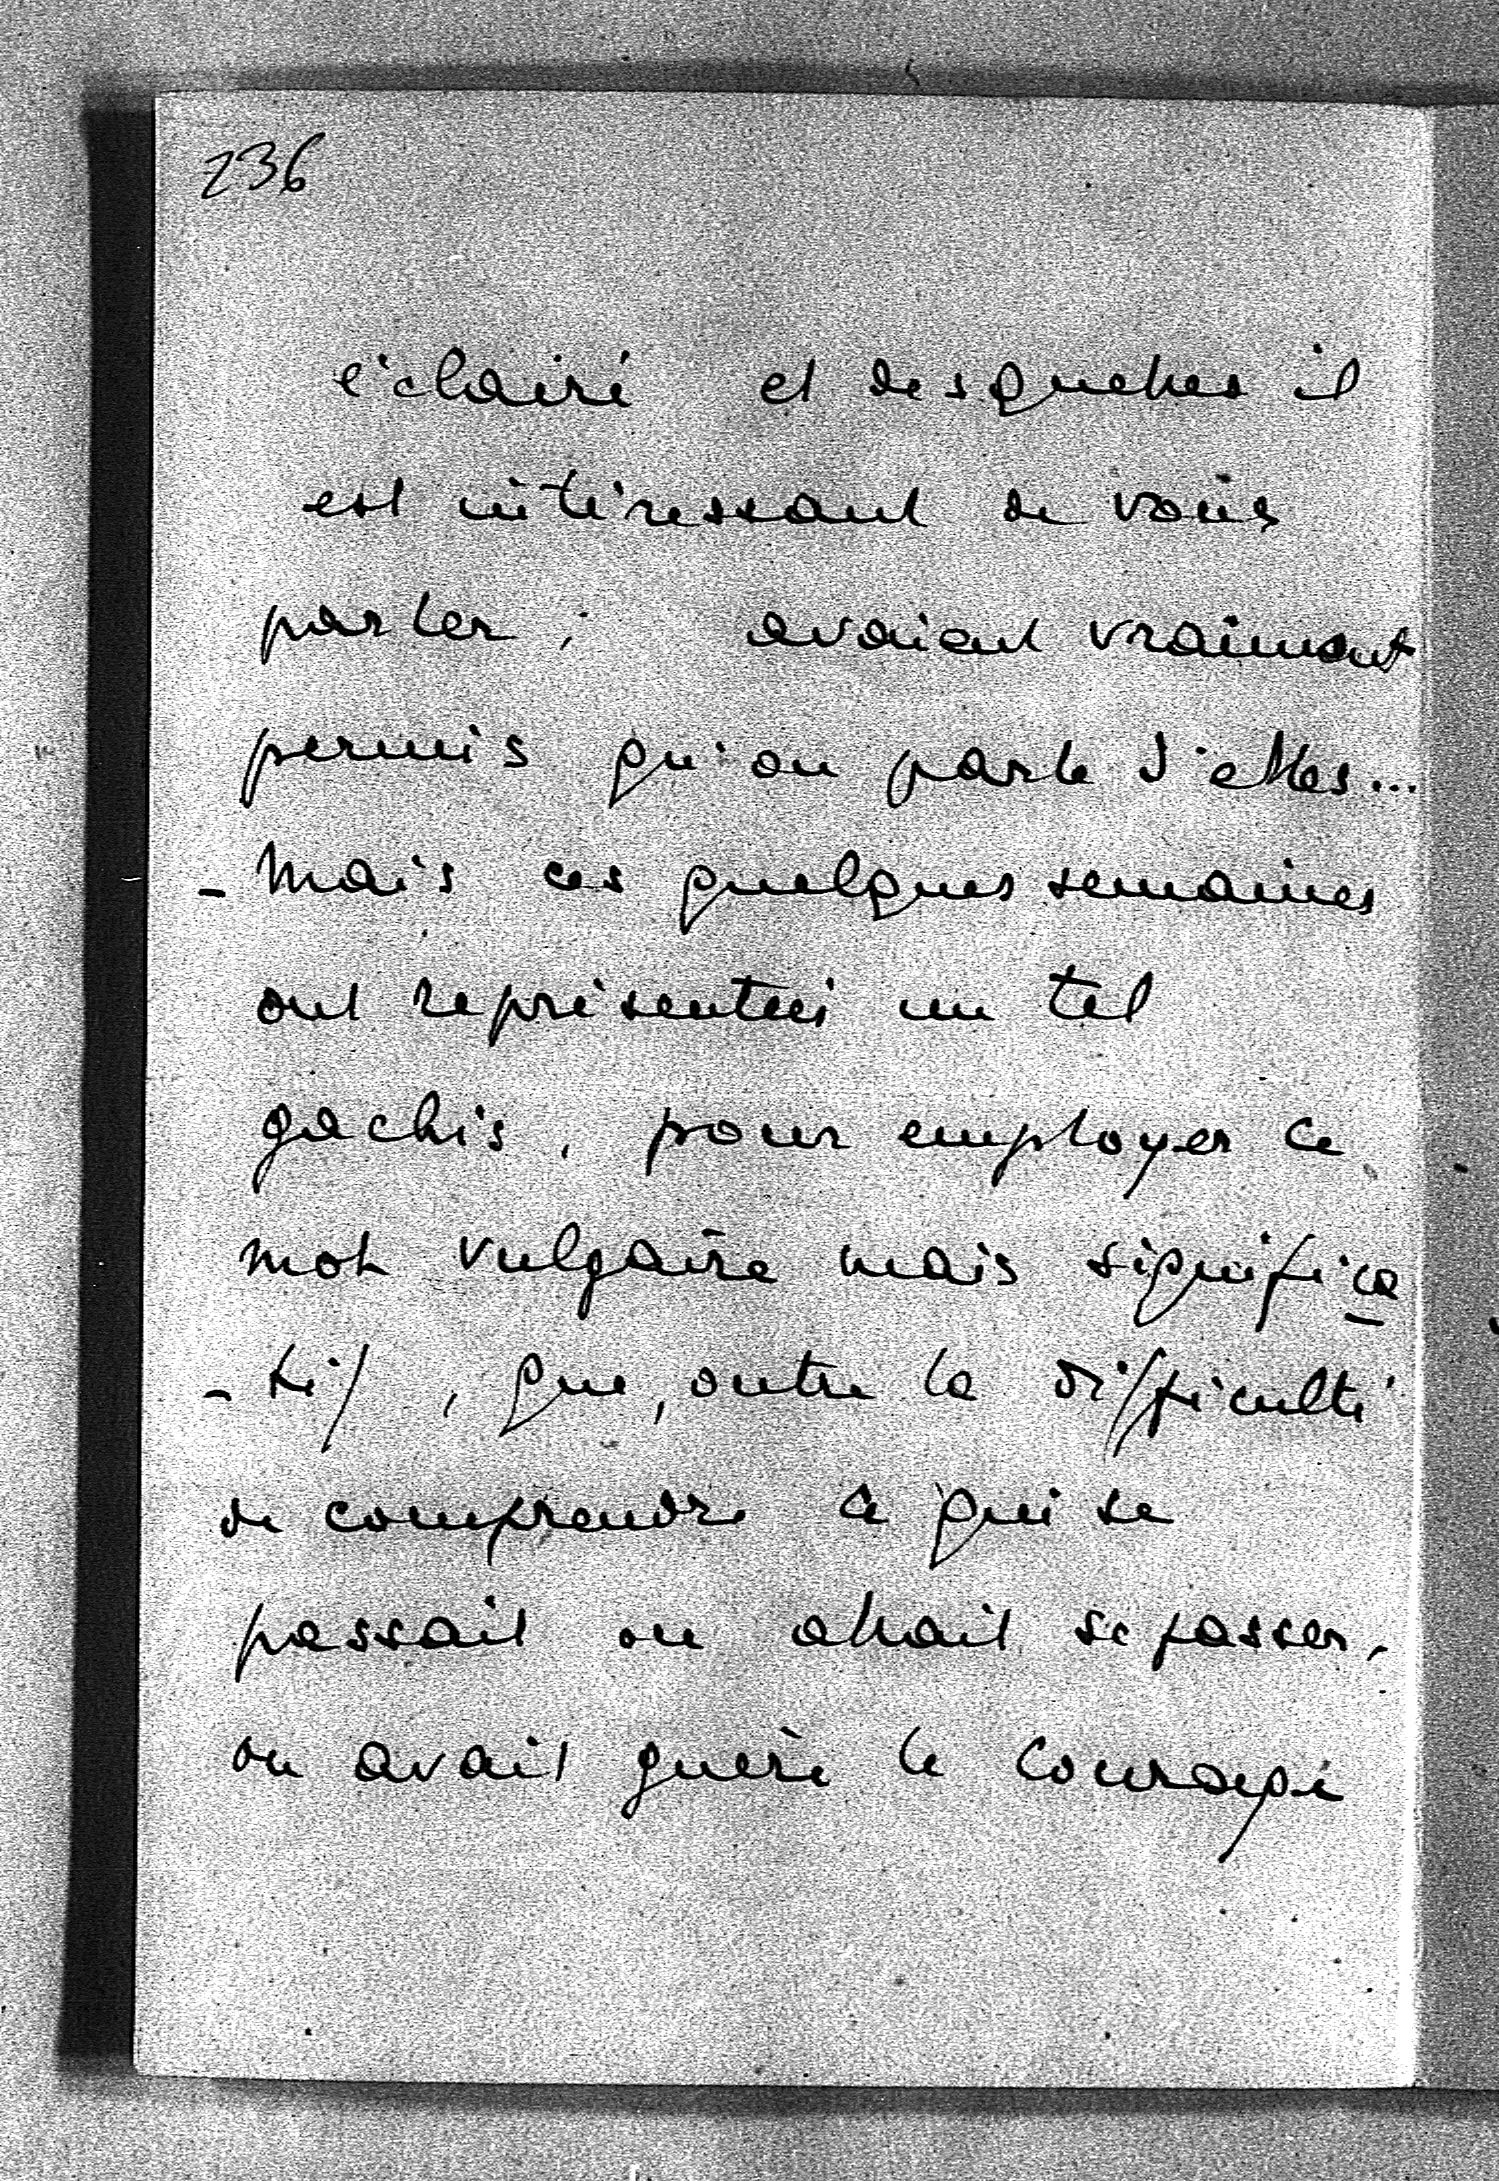 236
éclairé et desquelles il
est intéressant de vous
parler ; avaient vraiment
permis qu'on parle d'elles...
- Mais ces quelques semaines
ont représentées un tel
gachis, pour employer ce
mot vulgaire mais significa
- tif, que, outre la difficulté
de comprendre ce qui se
passait ou allait se passer,
on avait guère le courage